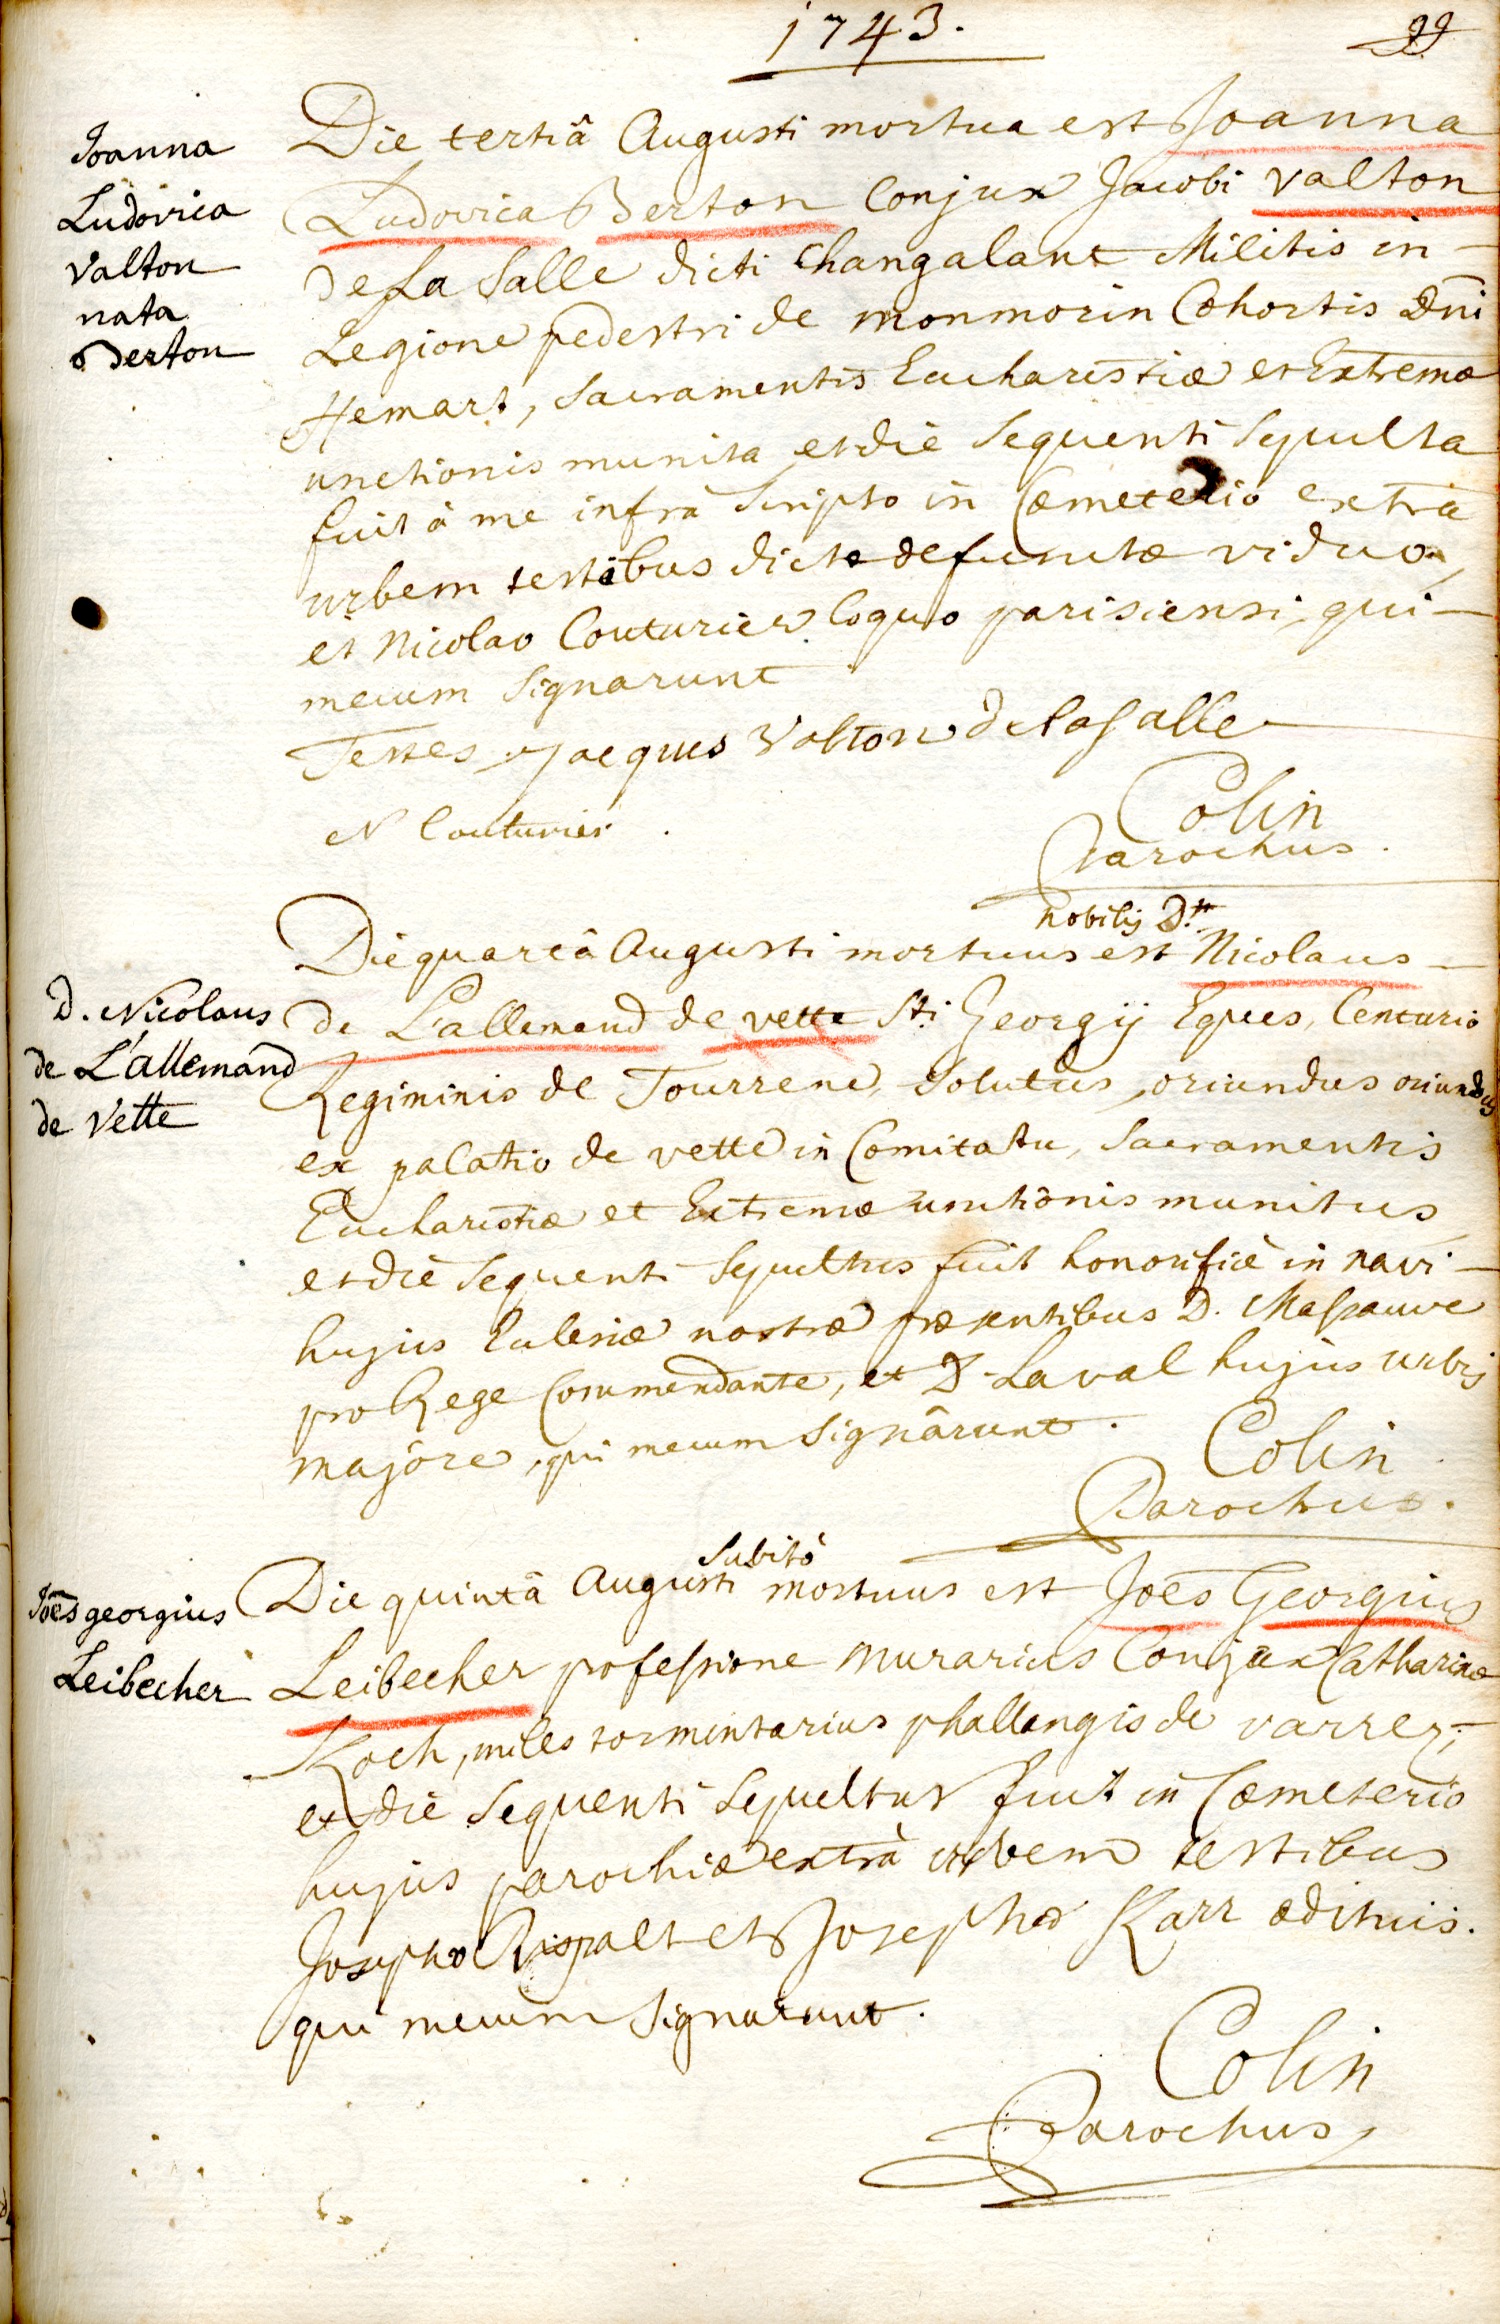 1743.
99
Joanna
Ludovica
Valton
nata
Berton
Die tertiâ Augusti mortua est Joanna
Ludovica Berton Conjux Jacobi Valton
De La Salle dicti Changalant Militis in
Legione pedestri de monmorin Cohortis Dni
Hemart, Sacramentis Eucharistiæ et Extremæ
unctionis munita et die sequenti sepulta
fuit à me infrà scripto in Cæmeterio extrà
urbem testibus dictæ defunctæ viduo
et Nicolao Couturier Coquo parisiensi, qui
mecum signarunt
Testes Jacques Valton de la Salle
N Couturier.
Colin
Parochus.
D. Nicolaus
de L'allemand
de Vette
nobilis D.
Die quartâ Augusti mortuus est Nicolaus
de L'allemend de vette Sti Georgij Eques, Centurio
Regiminis de Tourrene, solutus, oriundus oriundus
ex palatio de vette in Comitatu, Sacramentis
Eucharistiæ et Extremæ unctionis munitus
et die sequenti sepultus fuit honorificè in navi
hujus Ecclesiæ nostræ præsentibus D. Malsauve
pro Rege Commendante, et D. Laval hujus urbis
majore, qui mecum signârunt.
Colin
Parochus.
Joẽs georgius
Leibecher
Subitò
Die quintâ Augusti mortuus est Joẽs Georgius
Leibecher professione murarius Conjux Catharinæ
Koch, miles tormentarius phallangis de varrez,
et die sequenti sepultus fuit in Cæmeterio
hujus parochiæ extrà urbem testibus
Josepho Rispalt et Josepho Karr ædituis.
qui mecum signarunt.
Colin
Parochus